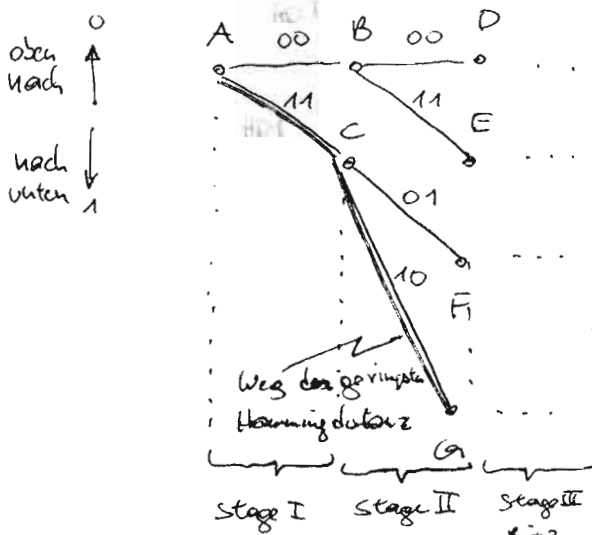 0
oben
nach
nach
unten
1
A 00 B 00 D
11 11
C E
01
10
F
Weg der geringsten
Hammingdistanz
G
Stage I Stage II Stage III